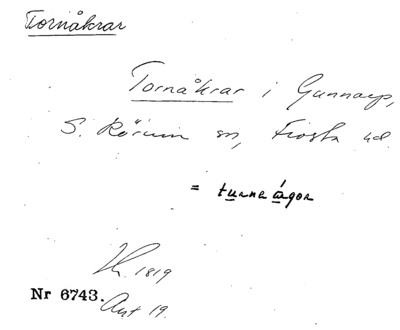 Tornåkrar
Tornåkrar i Gunnarp,
S. Rörum sn, Frosta hd.
= turneågor
1819
Nr 6743.
Ant 19.